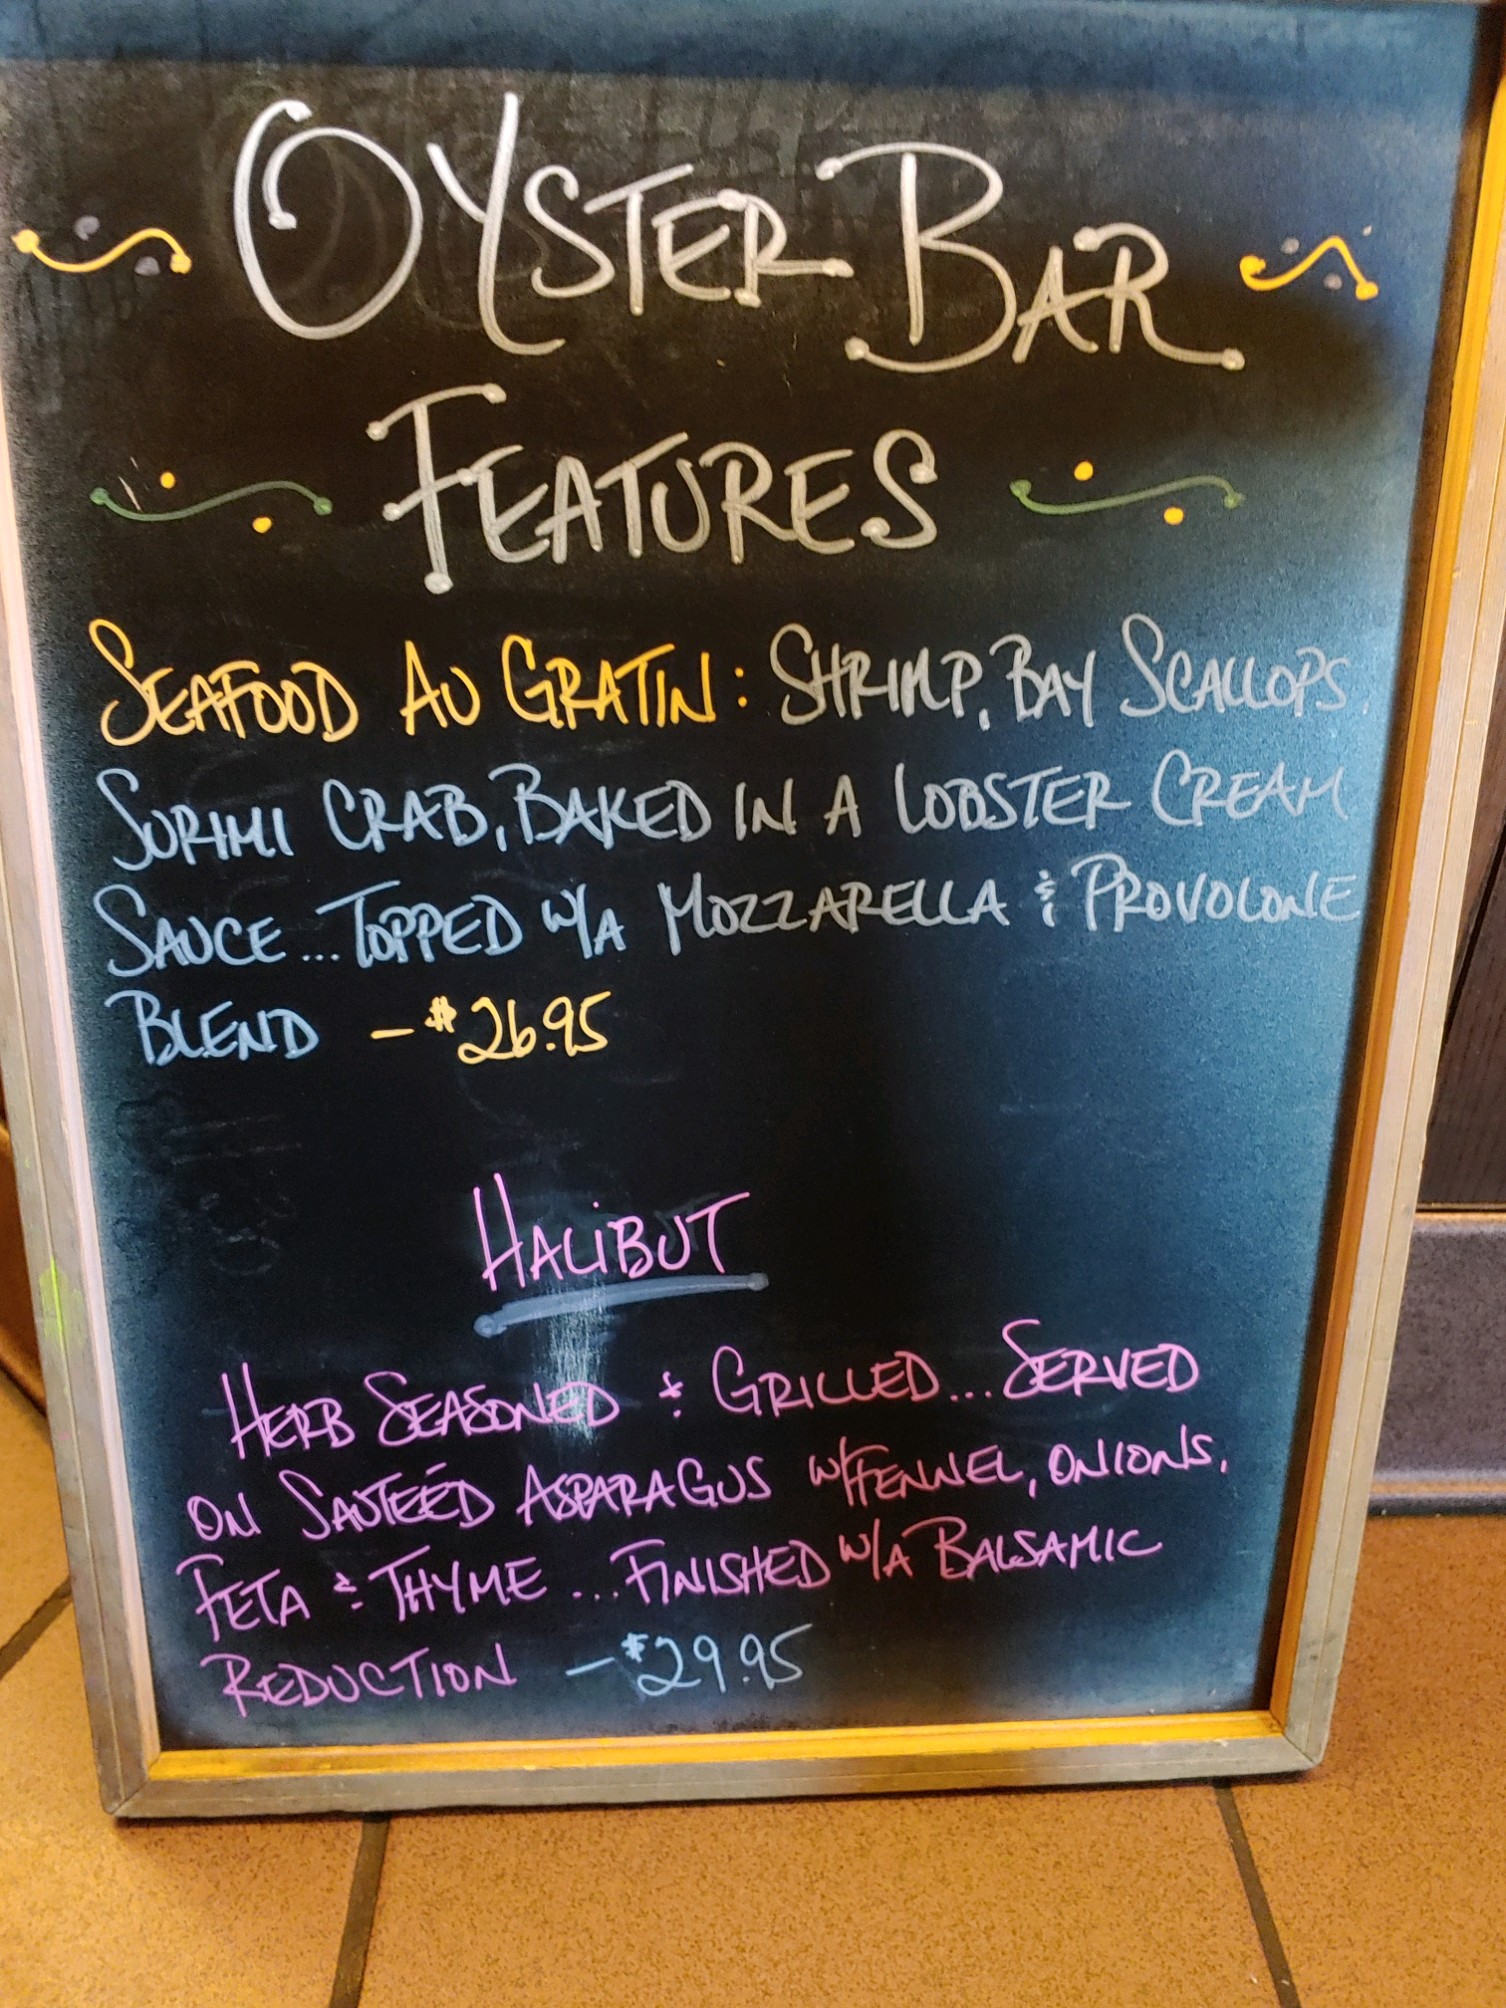 OYSTER BAR
FEATURES
SEAFOOD AU GRATIN: SHRIMP, BAY SCALLOPS,
SURIMI CRAB, BAKED IN A LOBSTER CREAM
SAUCE... TOPPED W/A MOZZARELLA & PROVOLONE
BLEND - $26.95
HALIBUT
HERB SEASONED & GRILLED... SERVED
ON SAUTEÉD ASPARAGUS W/FENNEL, ONIONS,
FETA & THYME ... FINISHED W/A BALSAMIC
REDUCTION - $29.95